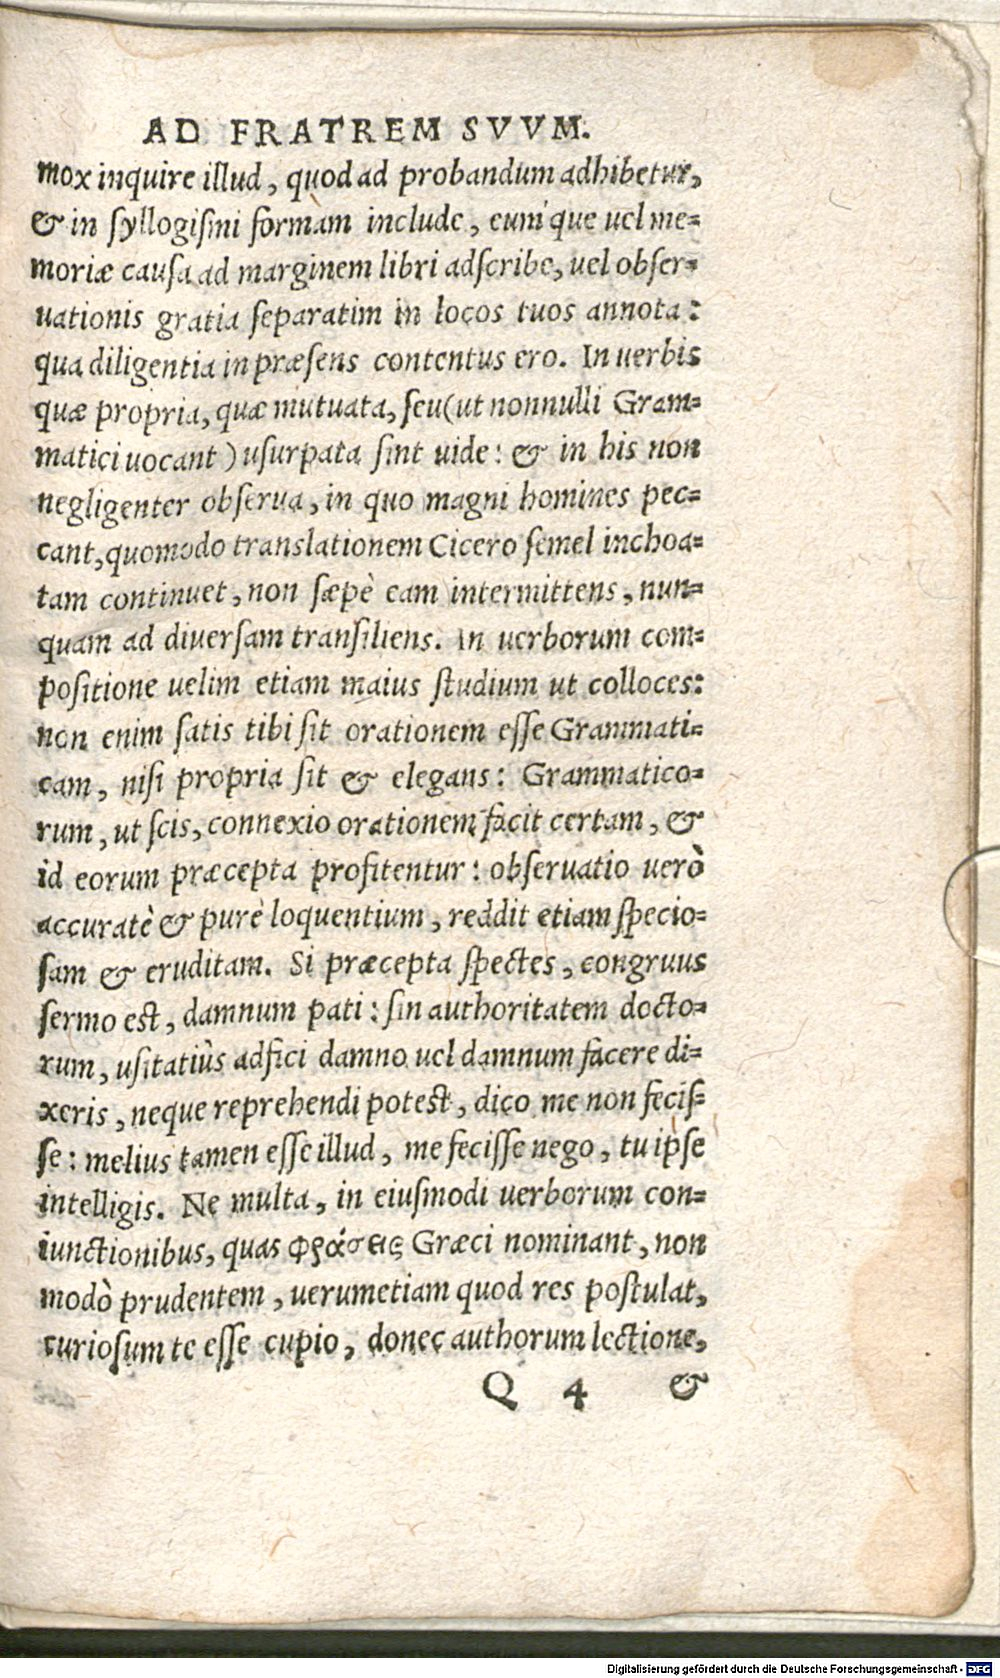 AD FRATREM SVVM.
mox inquire illud, quod ad probandum adhibetur,
& in ſyllogiſmi formam include, eum´que uel me-
moriæ cauſa ad marginem libri adſcribe, uel obſer-
uationis gratia ſeparatim in locos tuos annota:
qua diligentia in præſens contentus ero. In uerbis
quæ propria, quæ mutuata, ſeu (ut nonnulli Gram-
matici uocant) uſurpata ſint uide: & in his non
negligenter obſerua, in quo magni homines pec-
cant, quomodo translationem Cicero ſemel inchoa-
tam continuet, non ſæpè eam intermittens, nun-
quam ad diuerſam tranſiliens. In uerborum com-
poſitione uelim etiam maius ſtudium ut colloces:
non enim ſatis tibi ſit orationem eſſe Grammati-
cam, niſi propria ſit & elegans: Grammatico-
rum, ut ſcis, connexio orationem facit certam, &
id eorum præcepta profitentur: obſeruatio uerò
accuratè & purè loquentium, reddit etiam ſpecio-
ſam & eruditam. Si præcepta ſpectes, congruus
ſermo eſt, damnum pati: ſin authoritatem docto-
rum, uſitatiùs adfici damno uel damnum facere di-
xeris, neque reprehendi poteſt, dico me non feciſ-
ſe: melius tamen eſſe illud, me feciſſe nego, tu ipſe
intelligis. Ne multa, in eiuſmodi uerborum con-
iunctionibus, quas φράσεις Græci nominant, non
modò prudentem, uerumetiam quod res poſtulat,
curioſum te eſſe cupio, donec authorum lectione,
Q 4 &
Digitalisierung gefördert durch die Deutsche Forschungsgemeinschaft - DFG